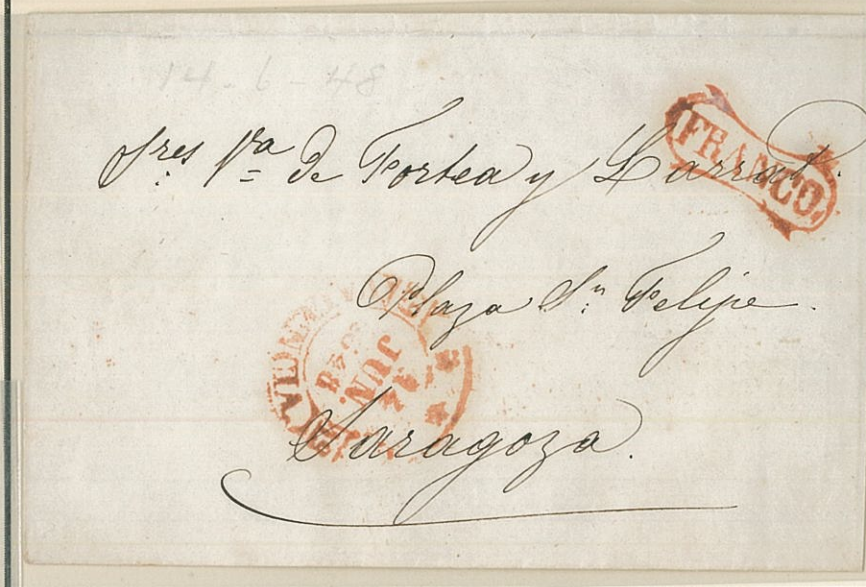 14-6-48
Sres Va de Fortea y Larrat.
FRANCO.
Plaza Sn Felipe.
14
JUN.
1848
Zaragoza.